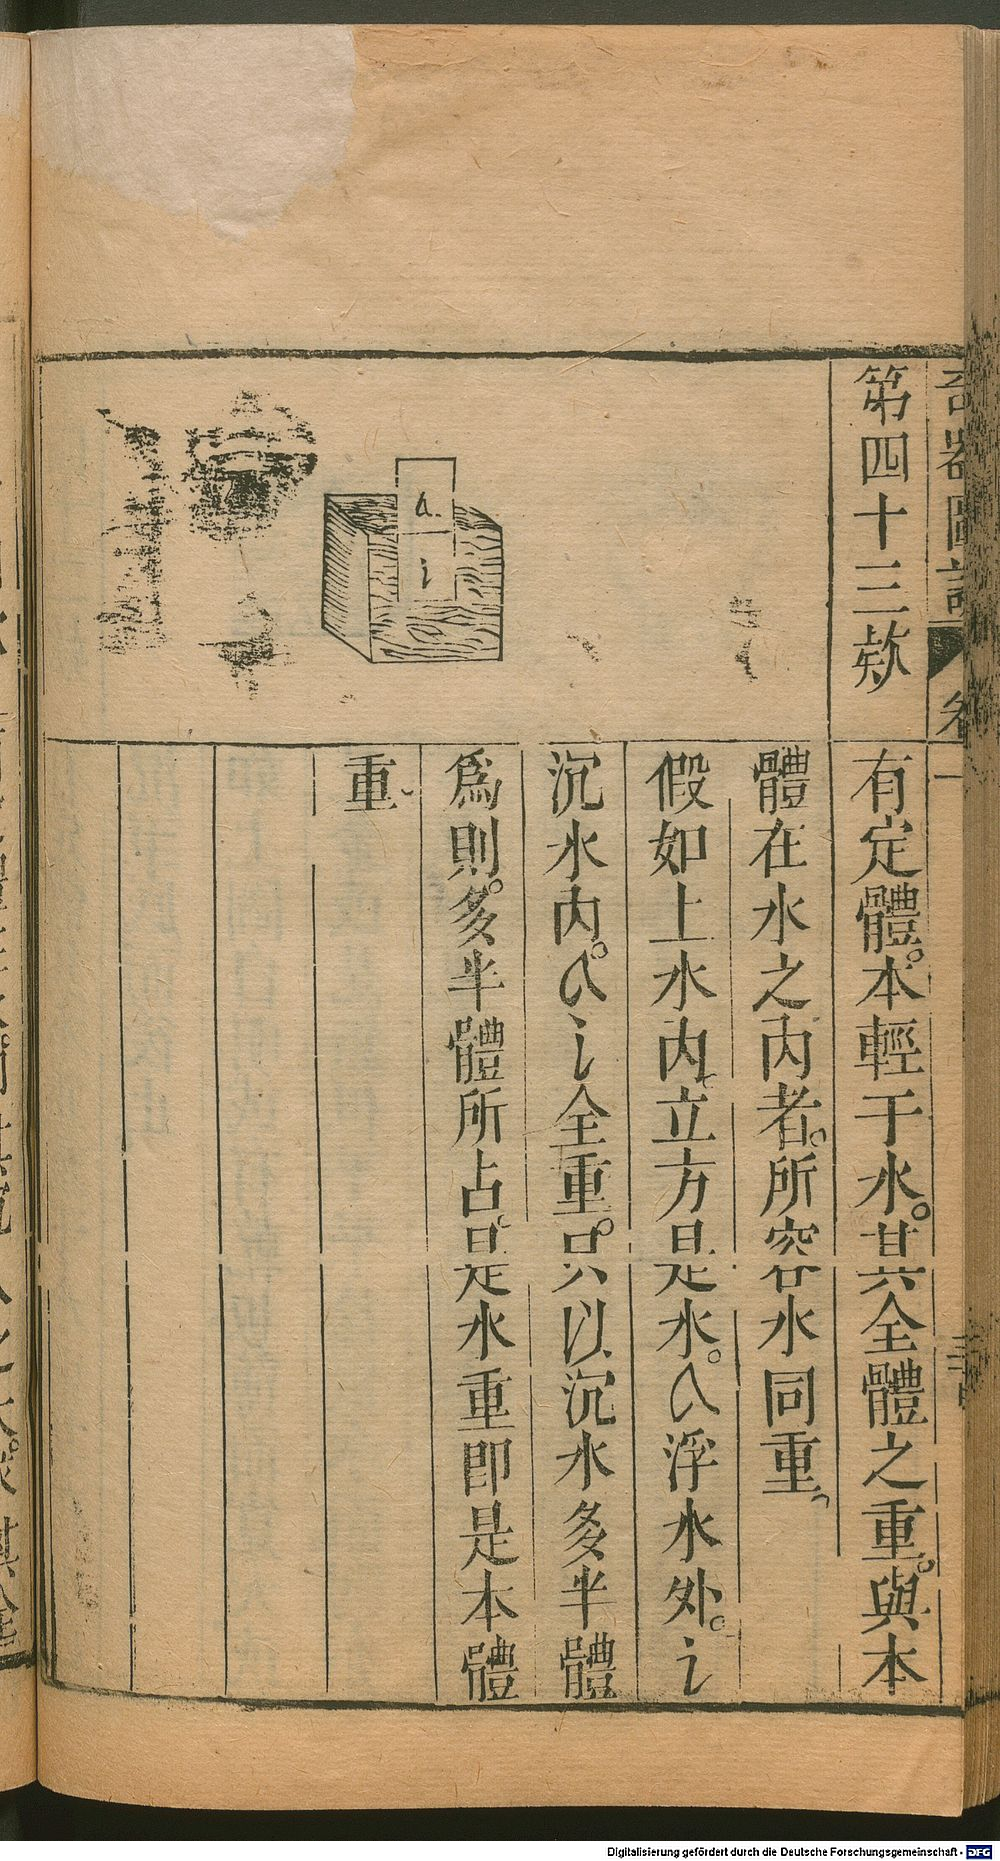 奇器圖說 卷一
第四十三款
有定體。本輕于水。其全體之重。與本
體在水之內者。所容水同重
假如上水內立方是水。a浮水外。i
沉水內。a i全重。只以沉水多半體
爲則。多半體所占。是水重即是本體
重
a
i
Digitalisierung gefördert durch die Deutsche Forschungsgemeinschaft - DFG